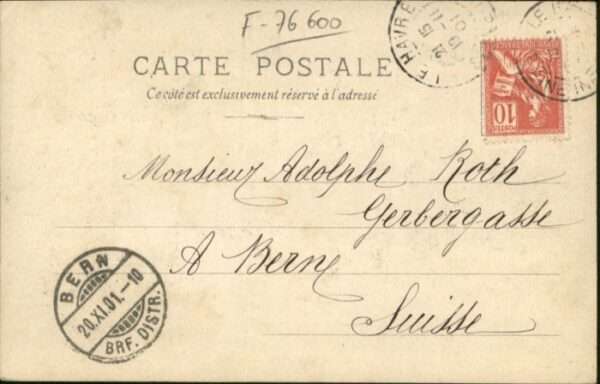 F-76600
CARTE POSTALE
Ce côté est exclusivement réservé à l'adresse
LE HAVRE
10
POSTES
Monsieur Adolphe Roth
Gerbergasse
A Berne
Suisse
BERN
20.XI.01.-10
BRF. DISTR.